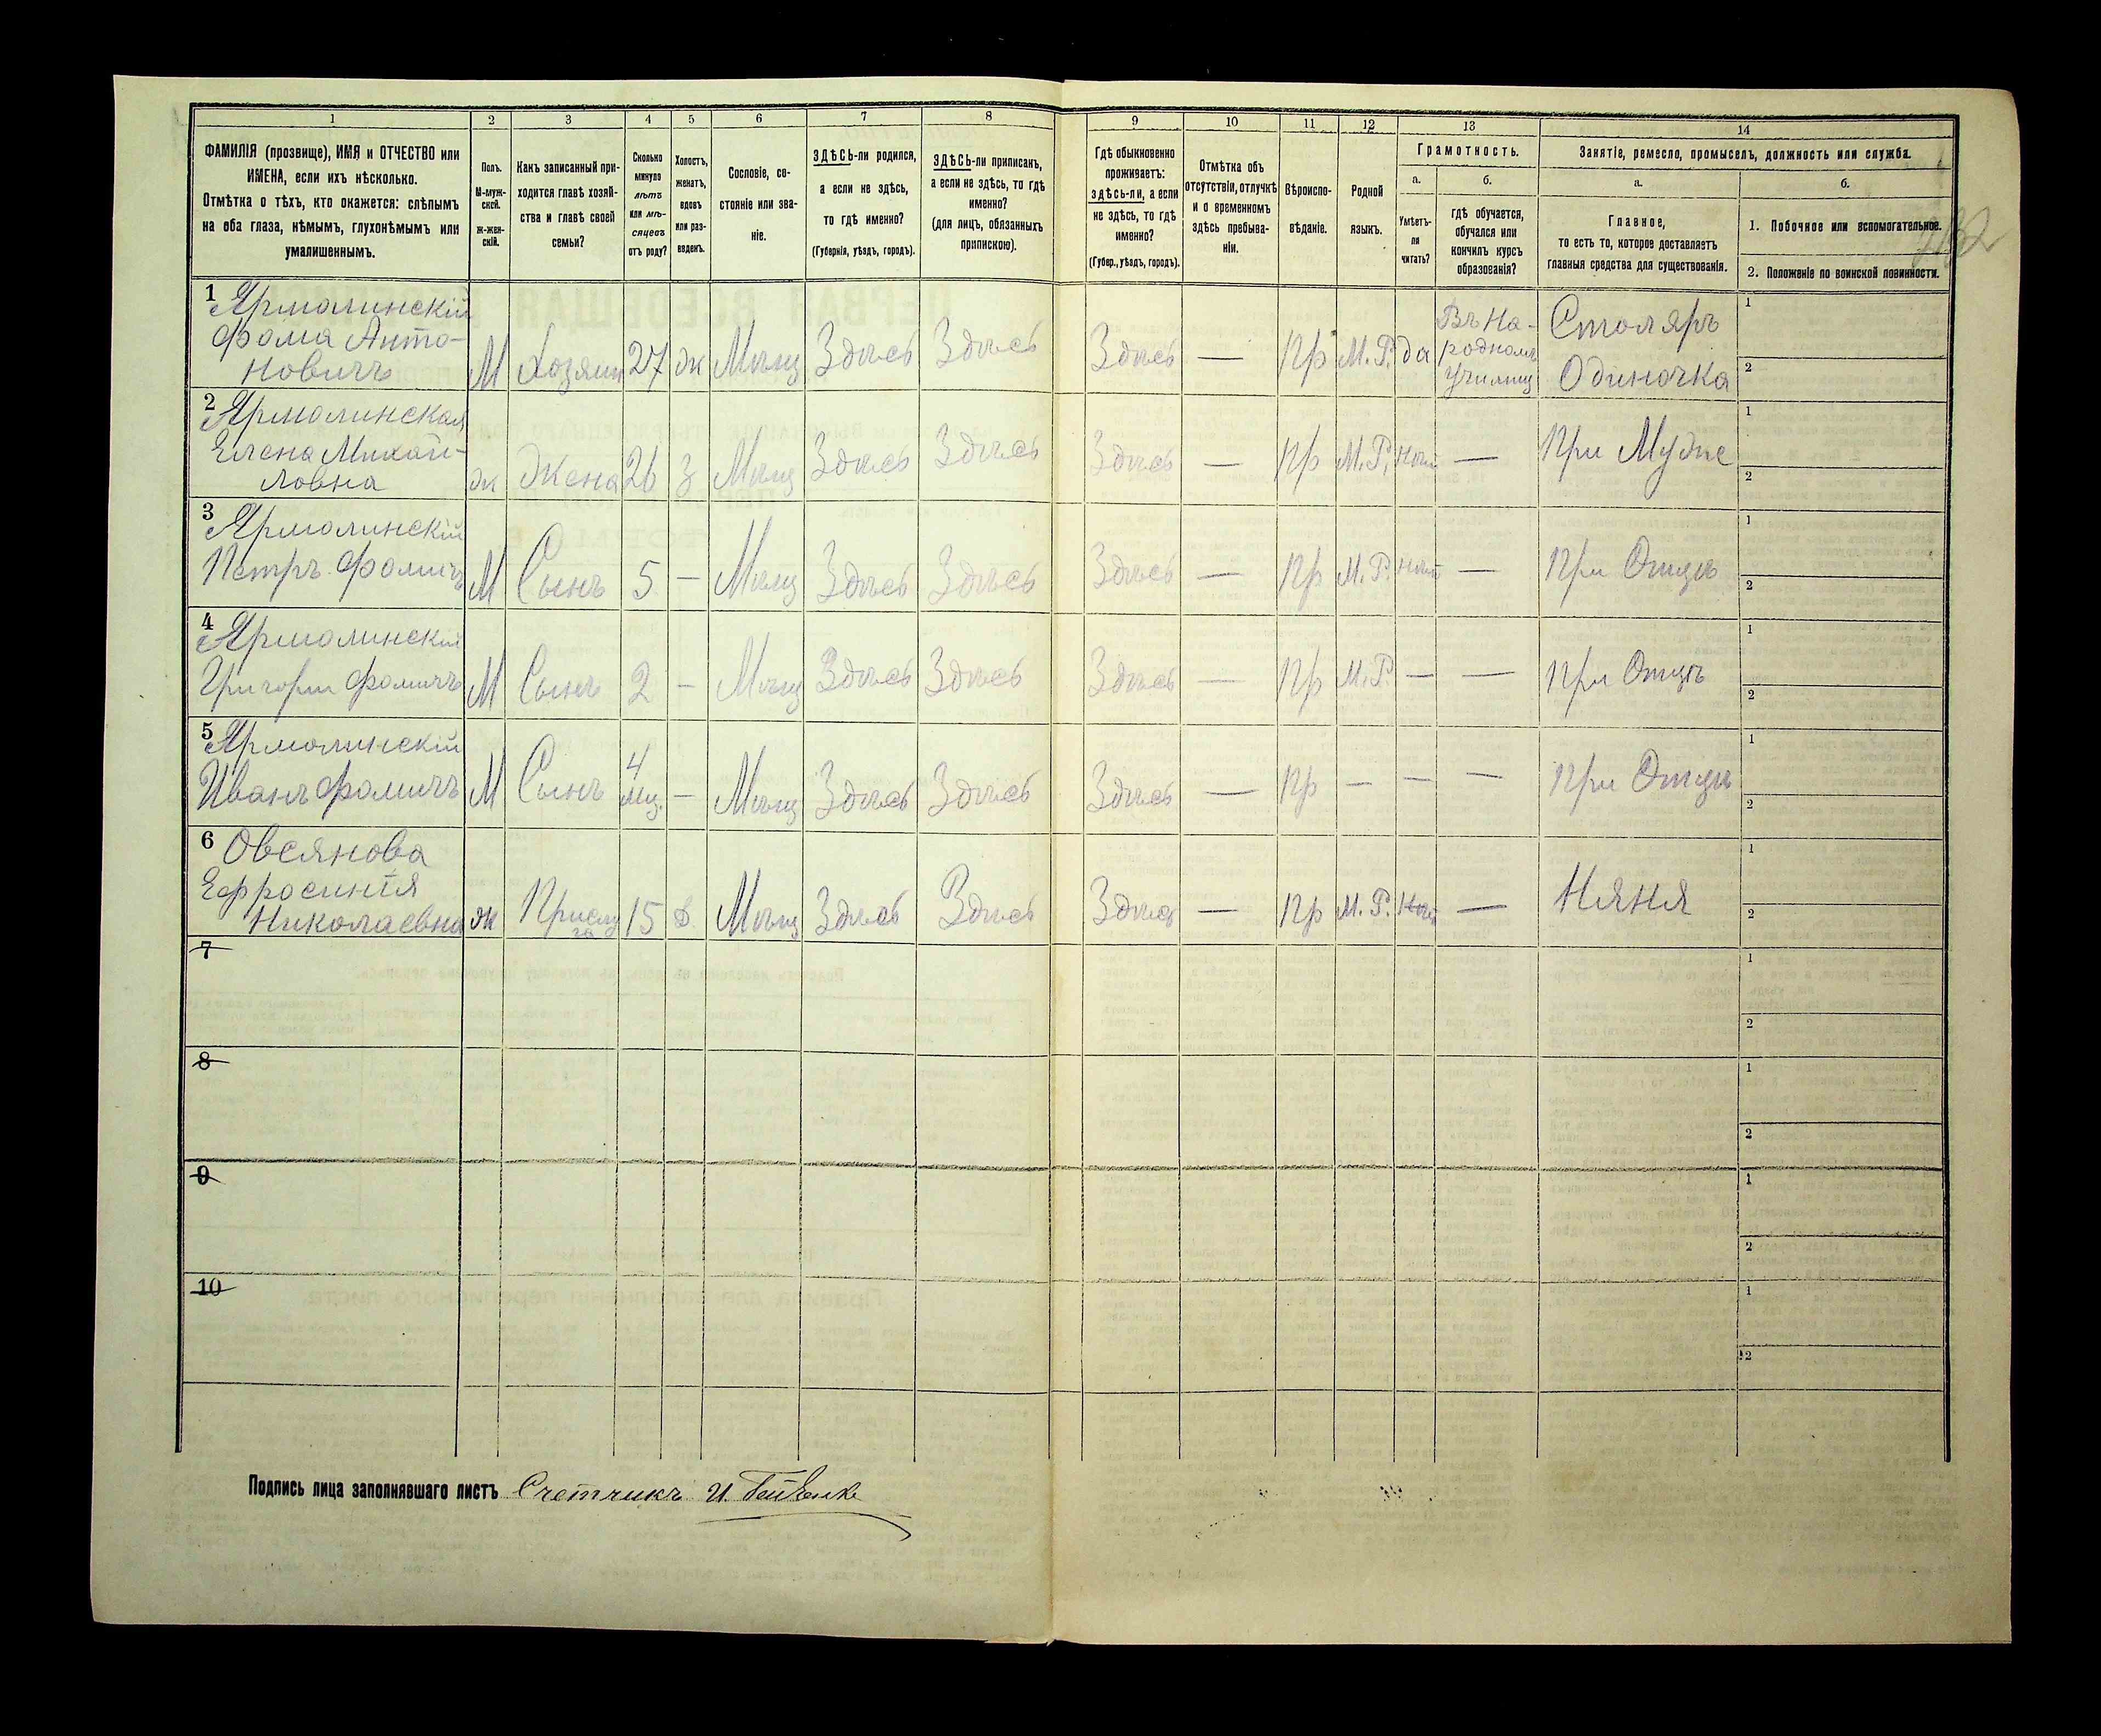 1 2 3 4 5 6 7 8 9 10 11 12 13 14
ФАМИЛІЯ (прозвище), ИМЯ и ОТЧЕСТВО или
ИМЕНА, если ихъ нѣсколько.
Отмѣтка о тѣхъ, кто окажется: слѣпымъ
на оба глаза, нѣмымъ, глухонѣмымъ или
умалишеннымъ.
Полъ.
М-муж-
ской.
Ж-жен-
скій.
Какъ записанный при-
ходится главѣ хозяй-
ства и главѣ своей
семьи?
Сколько
минуло
лѣтъ
или мѣ-
сяцевъ
отъ роду?
Холостъ,
женатъ,
вдовъ
или раз-
веденъ.
Сословіе, со-
стояніе или зва-
ніе.
ЗДѢСЬ-ли родился,
а если не здѣсь,
то гдѣ именно?
(Губернія, уѣздъ, городъ).
ЗДѢСЬ-ли приписанъ,
а если не здѣсь, то гдѣ
именно?
(для лицъ, обязанныхъ
припискою).
Гдѣ обыкновенно
проживаетъ:
здѣсь-ли, а если
не здѣсь, то гдѣ
именно?
(Губер., уѣздъ, городъ).
Отмѣтка объ
отсутствіи, отлучкѣ
и о временномъ
здѣсь пребыва-
ніи.
Вѣроиспо-
вѣданіе.
Родной
языкъ.
Грамотность.
а.
Умѣетъ-
ли
читать?
б.
гдѣ обучается,
обучался или
кончилъ курсъ
образованія?
Занятіе, ремесло, промыселъ, должность или служба.
а.
Главное,
то есть то, которое доставляетъ
главныя средства для существованія.
б.
1. Побочное или вспомогательное.
2. Положеніе по воинской повинности.
1 Ярмолинскій
Фома Анто-
новичъ
М Хозяин 27 ж Мѣщ Здѣсь Здѣсь Здѣсь — Пр М.Р. да
Въ На-
родномъ
Училищ
Столяръ
Одиночка
1
2
2 Ярмолинская
Елена Михай-
ловна
ж Жена 26 з Мѣщ Здѣсь Здѣсь Здѣсь — Пр М.Р. нѣт — При Мужѣ
1
2
3 Ярмолинскій
Петръ Фомичъ
М Сынъ 5 — Мѣщ Здѣсь Здѣсь Здѣсь — Пр М.Р. нѣт — При Отцѣ
1
2
4 Ярмолинскій
Григорій Фомичъ
М Сынъ 2 — Мѣщ Здѣсь Здѣсь Здѣсь — Пр М.Р — — При Отцѣ
1
2
5 Ярмолинскій
Иванъ Фомичъ
М Сынъ 4
мц. — Мѣщ Здѣсь Здѣсь Здѣсь — Пр — — — При Отцѣ
1
2
6 Овсянова
Ефросинія
Николаевна
ж Прислу
га 15 д. Мѣщ Здѣсь Здѣсь Здѣсь — Пр М.Р. Нѣт — Няня
1
2
7
1
2
8
1
2
9
1
2
10
1
2
Подпись лица заполнявшаго листъ Счетчикъ И.